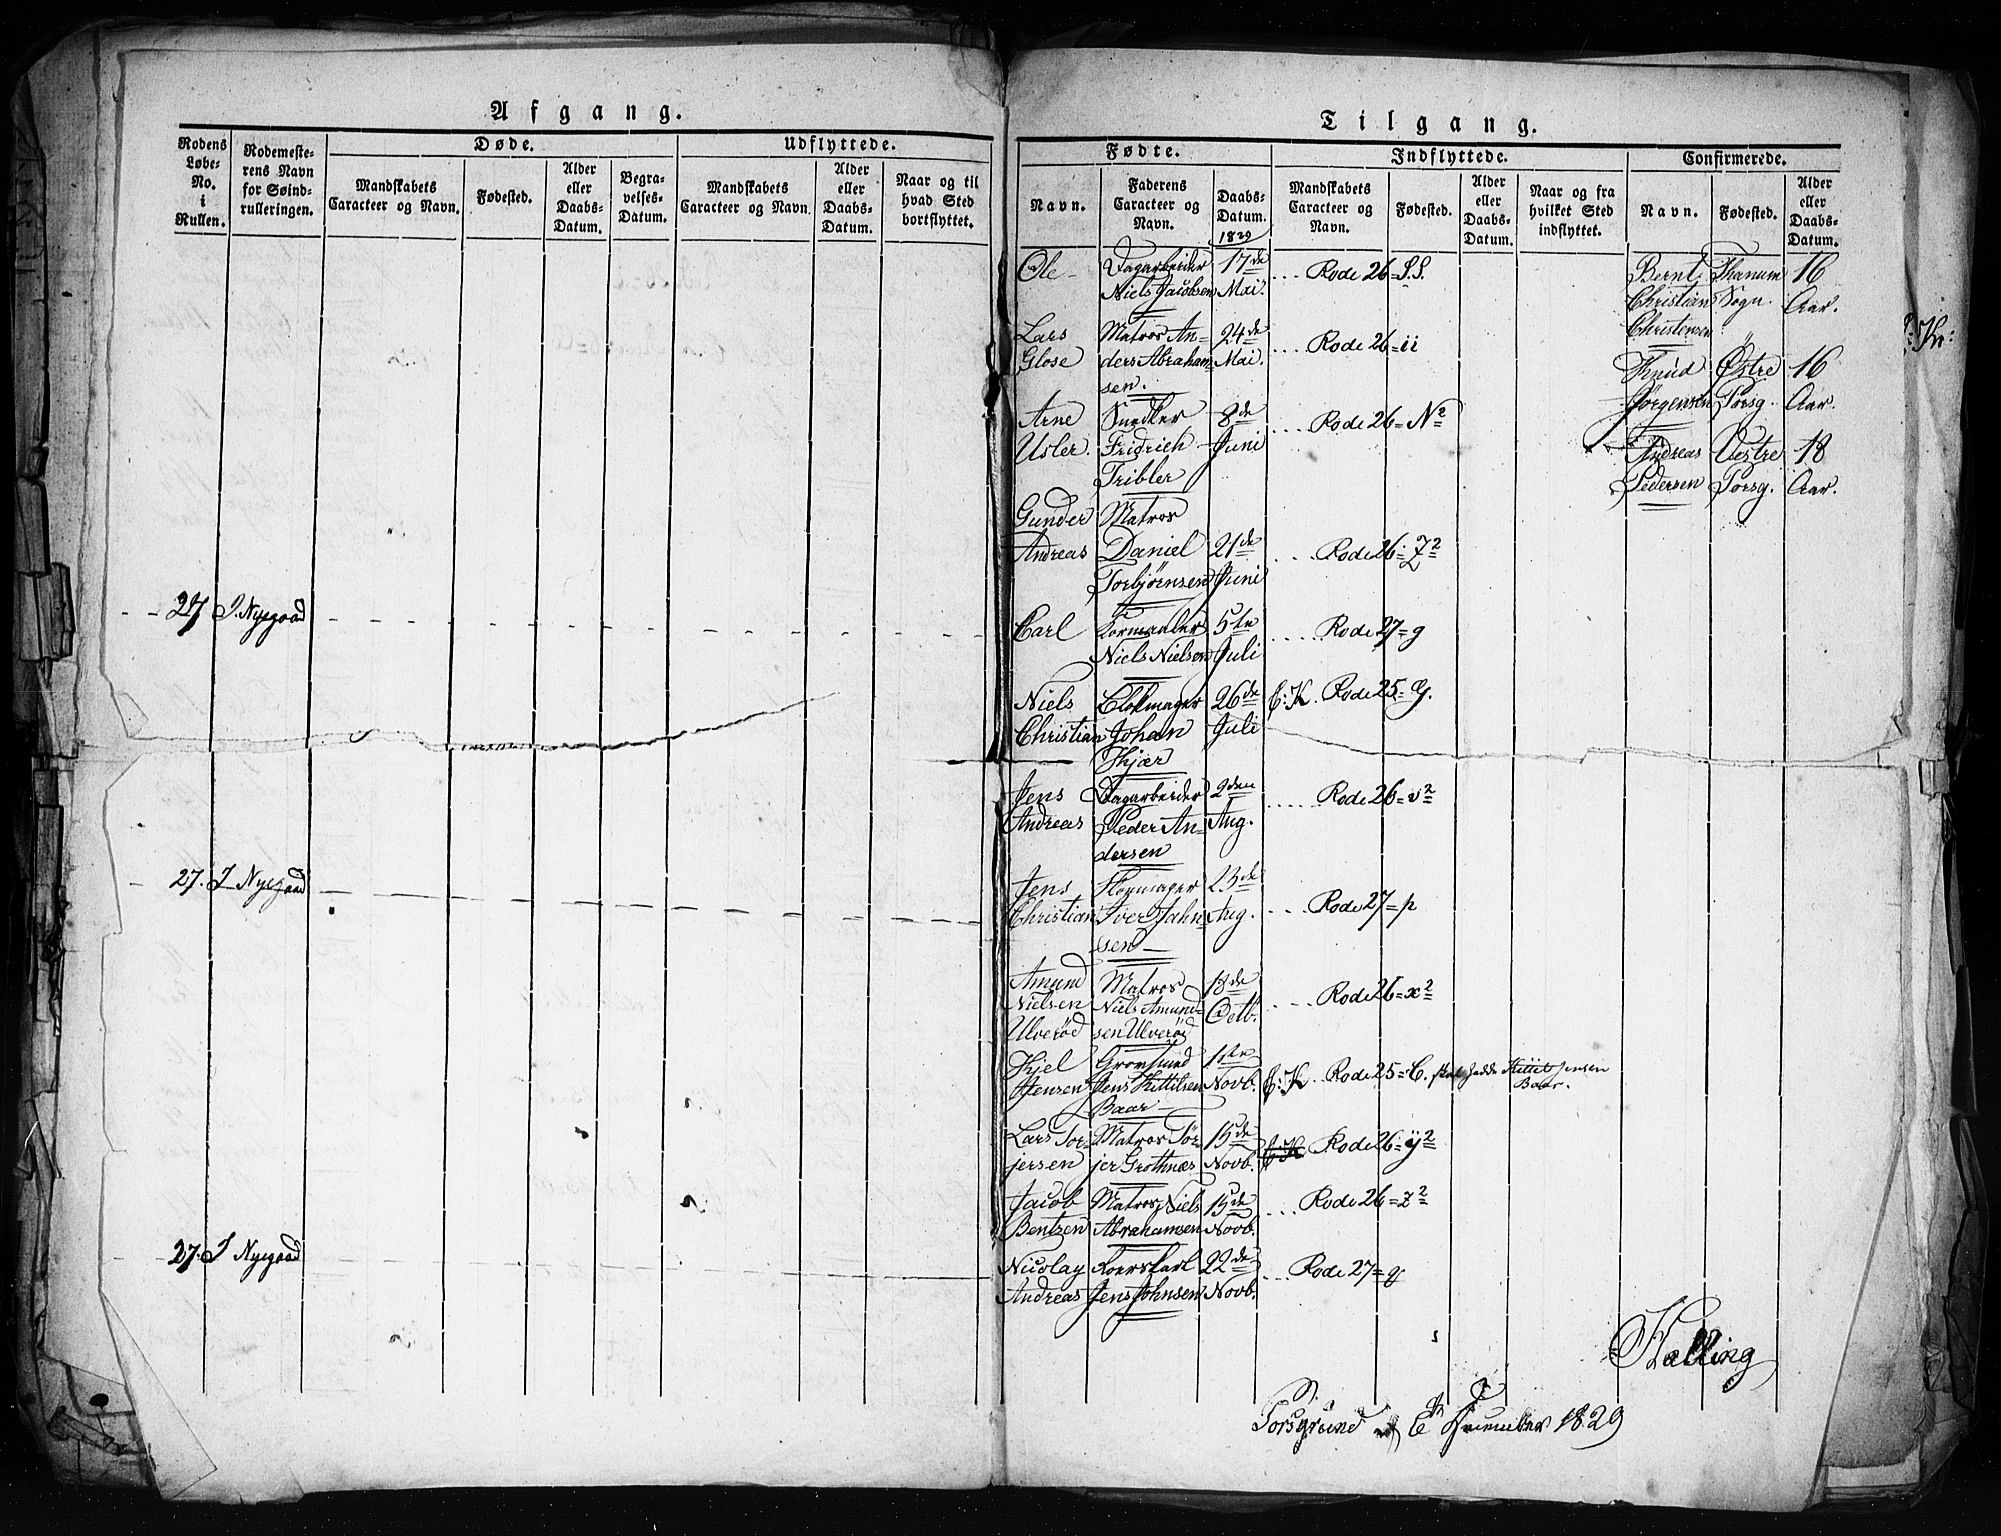 Afgang.
Rodens Løbe-No. i Rullen.
Rodemesterens Navn for Søindrulleringen.
Døde.
Mandskabets Caracteer og Navn.
Fødested.
Alder eller Daabs-Datum.
Begravelses-Datum.
Udflyttede.
Mandskabets Caracteer og Navn.
Alder eller Daabs-Datum.
Naar og til hvad Sted bortflyttet.
27 I. Nyegaad
27. I Nyegaad
27. I Nyegaad
Tilgang.
Fødte.
Navn.
Faderens Caracteer og Navn.
Daabs-Datum.
1829
Indflyttede.
Mandskabets Caracteer og Navn.
Fødested.
Alder eller Daabs-Datum.
Naar og fra hvilket Sted indflyttet.
Confirmerede.
Navn.
Fødested.
Alder eller Daabs-Datum.
Ole - Dagarbeider 17de .... Rode 26 =
Niels Jacobsen Mai.
Lars Matros An- 24de .... Rode 26 = ii
Glose ders Abraham- Mai.
sen.
Arne Snedker 8de .... Rode 26 = N2
Usler. Fridrich Juni
Tribler
Gunder Matros
Andreas Daniel 21de .... Rode 26 =
Torbjørnsen Juni
Carl Tormander 5te .... Rode 27 = g
Niels Nielsen Juli
Niels Blokmager 26de f: K. Rode 25 = G.
Christian Johan Juli
Kjær
Jens Dagarbeider 2den .... Rode 26 = v2
Andreas Peder An- Aug.
dersen
Jens 23de .... Rode 27 = p
Christian Iver Jahn- Aug.
sen
Amund Matros 18de .... Rode 26 = x2
Nielsen Niels Amund- Octb.
Ulverød sen Ulverød
Kjel 1ste f: K Rode 25 = C. skal hedde Kittil Jensen
Jensen Jens Kittilsen Novb. Baar.
Baar
Lars Tor- Matros Tør- 15de f: K Rode 26 = ÿ2
jersen jer Grothnæs Novb.
Jacob Matros Niels 15de .... Rode 26 = z2
Bentzen Abrahamsen Novb.
Nicolay 22de .... Rode 27 = q
Andreas Jens Johnsen Novb.
Bernt Thanum 16
Christian Sogn. Aar.
Christensen
Knud Østre 16
Jørgensen Porsg. Aar.
Andreas Vestre 18
Pedersen Porsg. Aar.
Halling
Porsgrund 6te December 1829